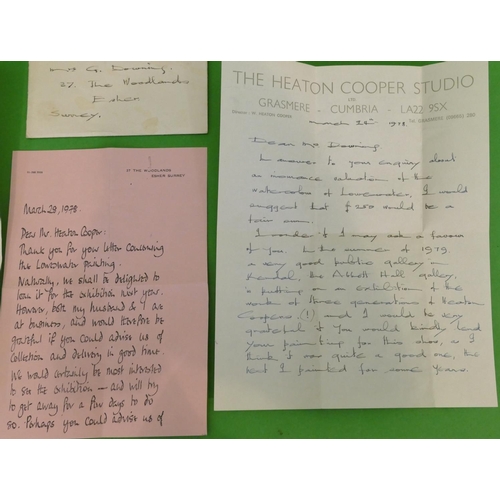 Mrs G. Downing.
27. The Woodlands
Esher
Surrey.
27 THE WOODLANDS
ESHER SURREY
March 29, 1978.
Dear Mr. Heaton Cooper:
Thank you for your letter concerning
the Loweswater painting.
Naturally, we shall be delighted to
loan it for the exhibition next year.
However, both my husband & I are
at business, and would therefore be
grateful if you could advise us of
collection and delivery in good time.
We would certainly be most interested
to see the exhibition — and will try
to get away for a few days to do
so. Perhaps you could advise us of
THE HEATON COOPER STUDIO
GRASMERE - CUMBRIA - LA22 9SX
March 1978
Dear Mrs Downing
In answer to your enquiry about
an insurance valuation of the
watercolour of Loweswater, I would
suggest that £250 would be a
fair sum.
I wonder if I may ask a favour
of you. In the summer of 1979
a very good public gallery in
Kendal, the Abbott Hall gallery,
is putting on an exhibition of the
work of three generations of Heaton
Coopers (!) and I would be very
grateful if you would kindly lend
your painting for this show, as I
think it was quite a good one, the
best I painted for some years.